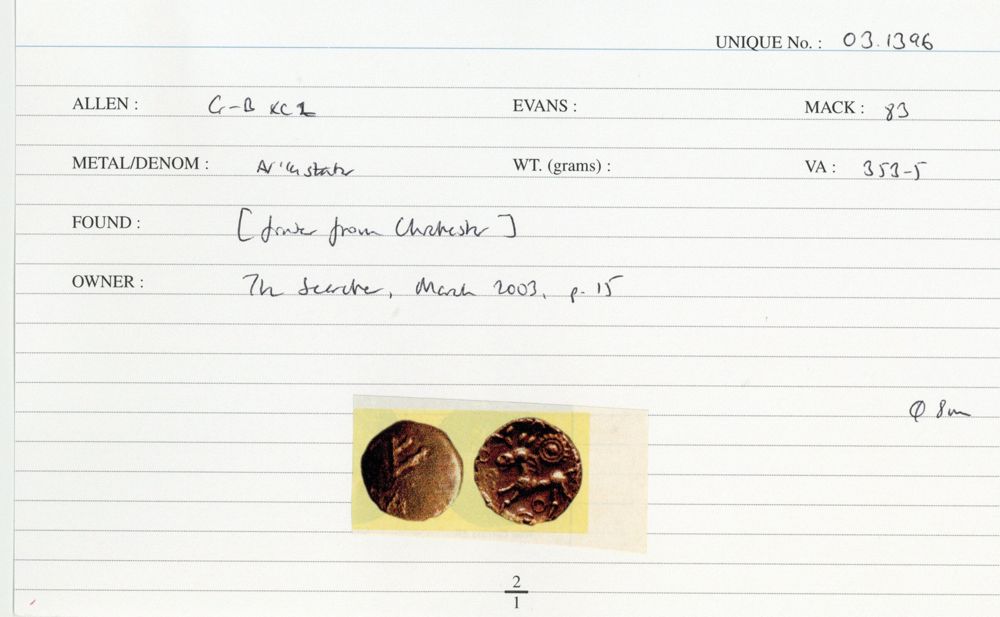 UNIQUE No. : 03.1396
ALLEN : G-B XC1 EVANS : MACK : 83
METAL/DENOM : AV ¼ stater WT. (grams) : VA : 353-5
FOUND : [ from Chichester ]
OWNER : The Searcher, March 2003, p. 15
Ø 8m
2
1